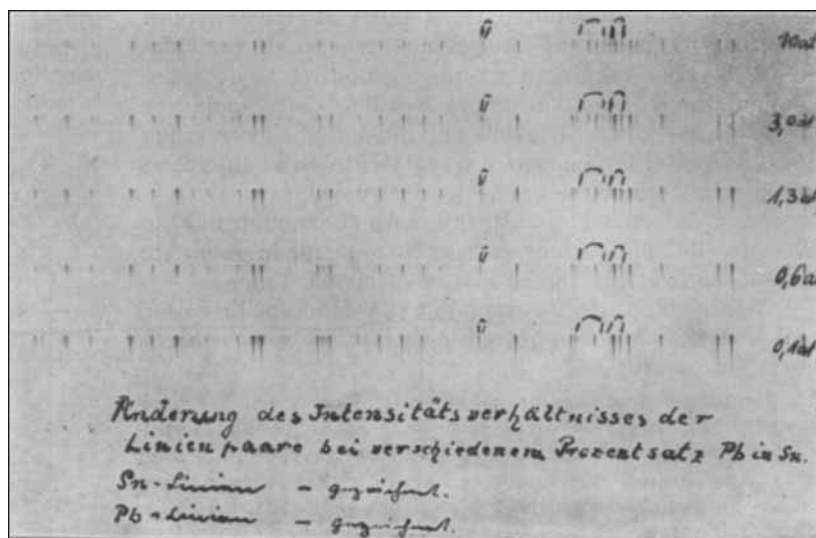 10 at
3,0 at
1,3 at
0,6 a
0,1 at
Änderung des Intensitätsverhältnisses der
Linienpaare bei verschiedenem Prozentsatz Pb in Sn.
Sn-Linien – gezeichnet.
Pb-Linien – gezeichnet.